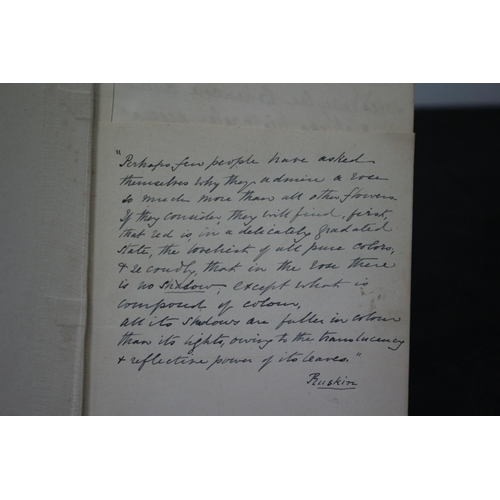 "Perhaps few people have asked
themselves why they admire a rose
so much more than all other flowers
If they consider, they will find, first,
that red is, in a delicately gradated
state, the loveliest of all pure colors,
& secondly, that in the rose there
is no shadow, except what is
composed of colour,
all its shadows are fuller in colour
than its lights, owing to the translucency
& reflective power of its leaves."
Ruskin